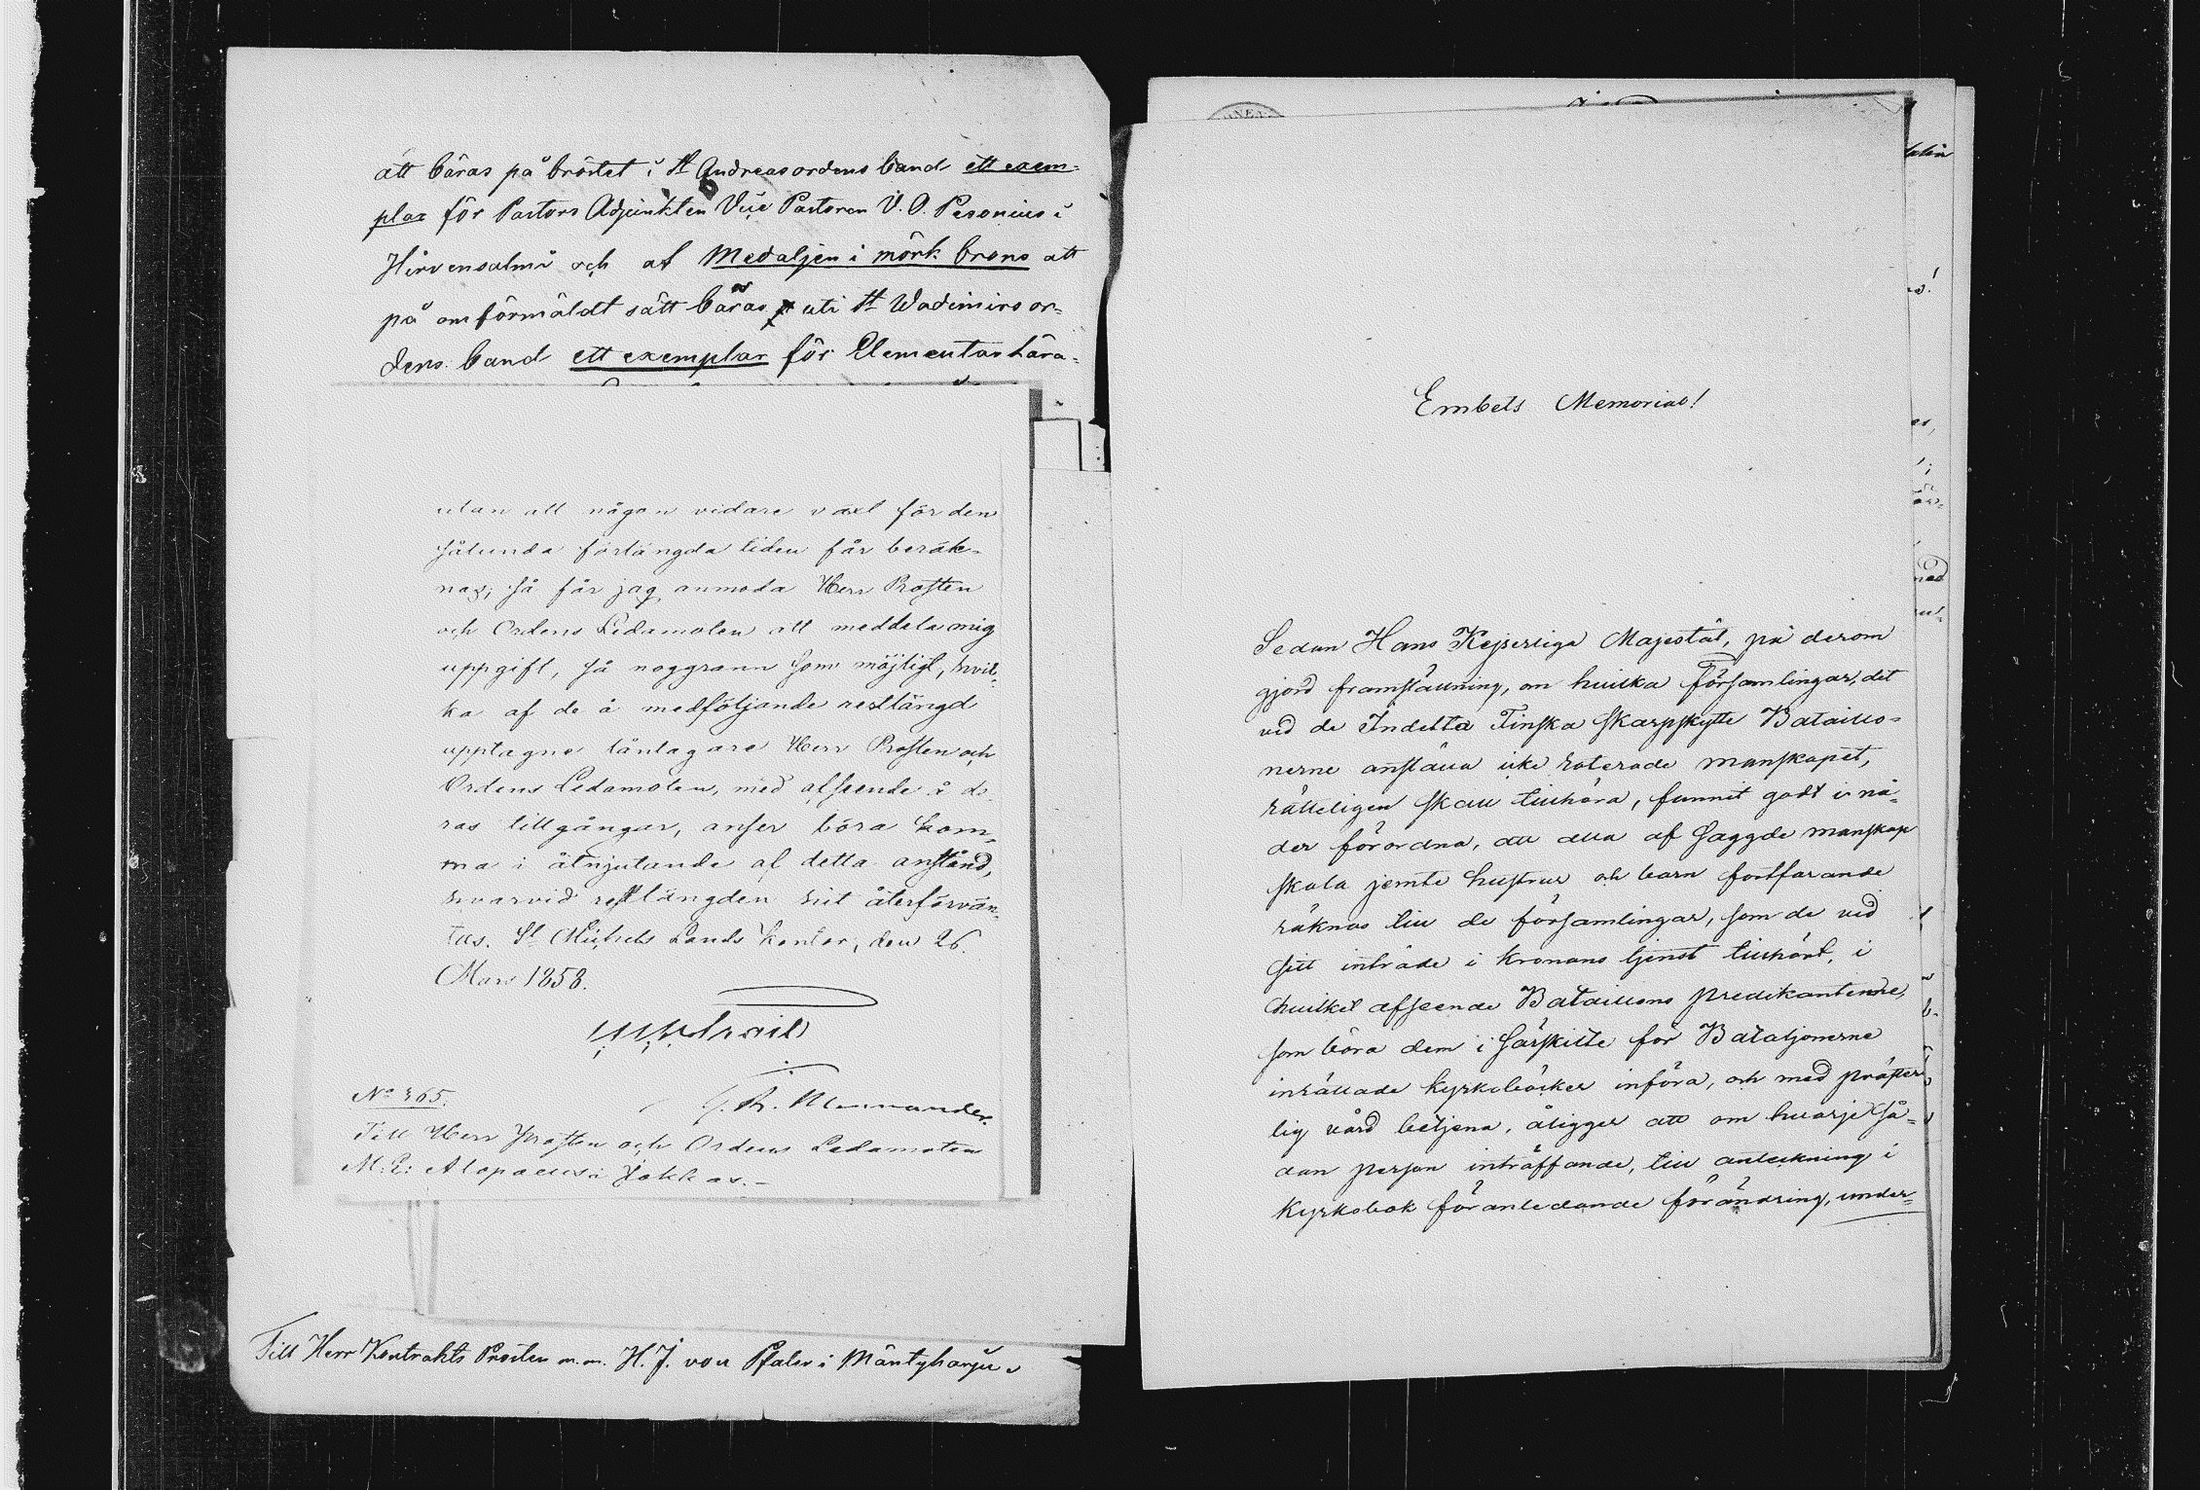 att bäras på bröstet i St Andreasordens band ett exem-
plar för Pastors Adjunkten Vice Pastoren V. O. Pesonius i
Hirvensalmi och af Medaljen i mörk brons att
på omförmäldt sätt bäras uti St Wadimirs or-
dens band ett exemplar för Elementar Lära-
utan att någon vidare växt för den
sålunda förlängda tiden får beräk-
nas; så får jag anmoda Herr Prosten
och Ordens Ledamoten att meddela mig
uppgift, så noggrann som möjligt, hvil-
ka af de å medföljande restlängd
upptagne låntagare Herr Prosten och
Ordens Ledamoten, med afseende å de-
ras tillgångar, anser böra kom-
ma i åtnjutande af detta anstånd,
hvarvid restlängden hit återförvän-
tas. St Michels Lands Kontor, den 26
Mars 1858.
No 365.
Till Herr Prosten och Ordens Ledamoten
M. E: Alopaeus i Jokkas.-
Till Herr Kontrakts Prosten m.m. H. J. von Pfaler i Mäntyharju
Embets Memorial!
Sedan Hans Kejserliga Majestät, på derom
gjord framställning, om hvilka Församlingar, det
vid de Indelta Finska Skarpskytte Bataillo-
nerne anställa icke roterade manskapet,
rätteligen skall tillhöra, funnit godt i nå-
der förordna, att alla af saggde manskap
skola jemte hustrur och barn fortfarande
räknas till de församlingar, som de vid
sitt inträde i Kronans tjenst tillhört, i
hvilket afseende Bataillons predikanterne,
som böra dem i särskilte för Bataljonerne
inrättade kyrkoböcker införa, och med präster-
lig vård betjena, åligger att om hvarje så-
dan person inträffande, till anteckning i
Kyrkobok föranledande förändring, under-